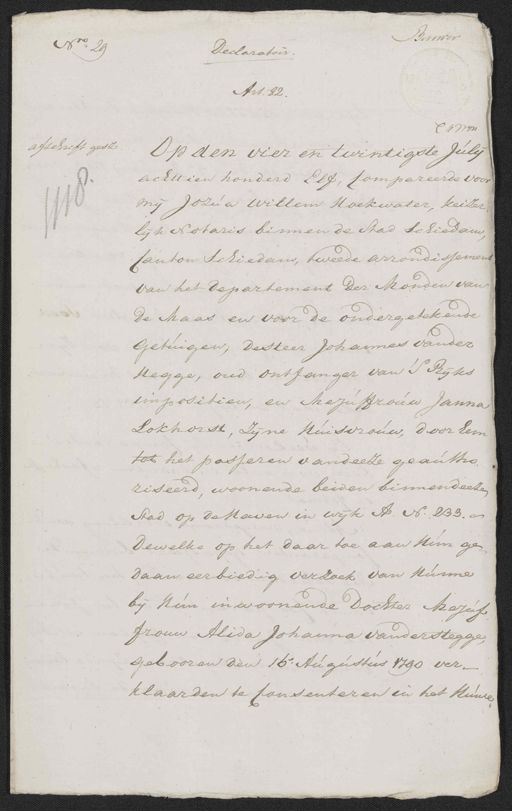 Nro. 29
Declaratoir.
Art. 32.
afschrift gest:
1118.
Op den vier en twintigste Julij
achttien honderd Elf, Compareerde voor
mij Jozua Willem Hoekwater, keizer-
lijk Notaris binnen de Stad Schiedam,
Canton Schiedam, tweede arrondissement
van het departement Der Monden van
de Maas en voor de ondergetekende
Getuigen, de Heer Johannes vander
Stegge, oud ontfanger van 's Ryks
impositien, en Mejuffrouw Janna
Lokhorst, Zyne Huisvrouw, door hem
tot het passeren vandeeze geautho-
riseerd, woonende beiden binnen deeze
Stad, op de Haven in wyk A No. 233. -
Dewelke op het daar toe aan Hun ge-
daan eerbiedig verzoek van Hunne
by Hun inwoonende Dochter Mejuf-
frouw Alida Johanna vanderstegge,
gebooren den 16e Augustus 1790 ver-
klaarden te Consenteren in het Huwe-